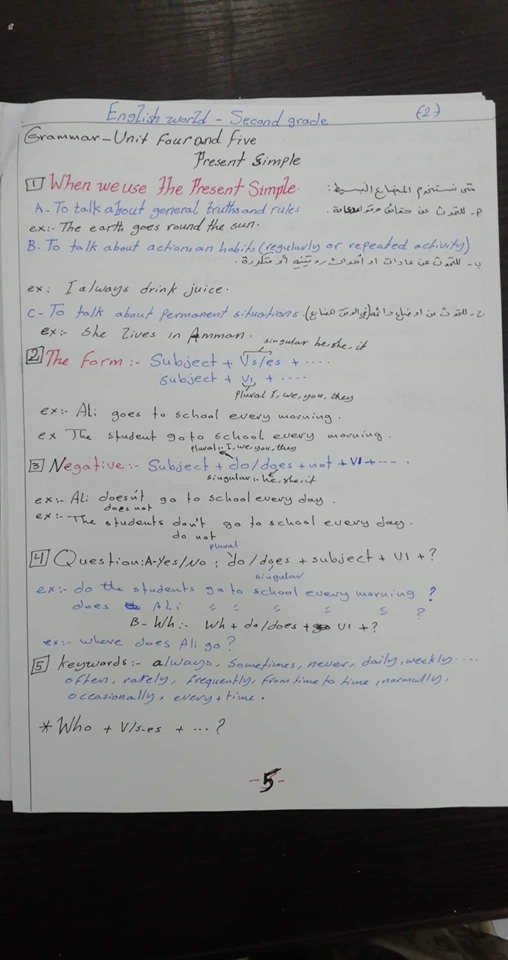 English world - Second grade (2)
Grammar - Unit four and five
Present Simple
1 When we use the Present Simple. متى نستخدم المضارع البسيط:
A. To talk about general truths and rules أ- للتحدث عن حقائق
ex:- The earth goes round the sun.
B. To talk about actions an habits (regularly or repeated activity)
ب- للتحدث عن عادات او أحداث روتينية أو متكررة.
ex: I always drink juice.
C- To talk about permanent situations. ج- للتحدث عن
ex:- She lives in Amman.
singular he, she, it
2 The form:- Subject + Vs/es + ....
Subject + V1 + ....
plural I, we, you, they
ex:- Ali goes to school every morning.
ex The student go to school every morning.
plural:- I, we, you, they
3 Negative:- Subject + do/does + not + V1 + ....
singular:- he, she, it
ex:- Ali doesn't go to school every day.
does not
ex:- The students don't go to school every day.
do not
plural
4 Question: A-Yes/No: do/does + subject + V1 + ?
singular
ex:- do the students go to school every morning ?
does Ali " " " " " ?
B- Wh:- Wh + do/does + V1 + ?
ex:- where does Ali go?
5 keywords:- always, sometimes, never, daily, weekly ....
often, rarely, frequently, from time to time, normally,
occasionally, every + time.
* Who + V/s-es + ... ?
-5-